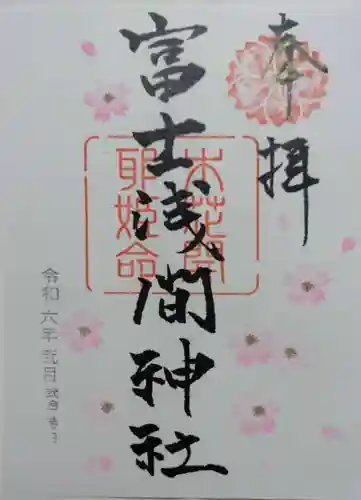 奉拝
富士浅間神社
木花開
耶姫命
令和六年